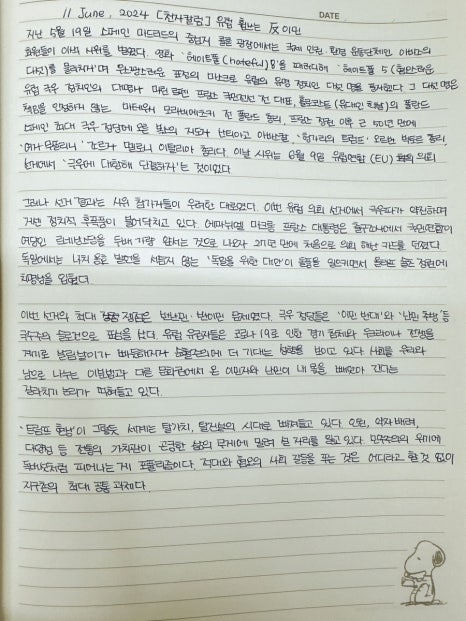 11 June, 2024 [천자칼럼] 유럽 휩쓰는 反이민
DATE
지난 5월 19일 스페인 마드리드의 중심지 콜론 광장에서는 국제 인권 환경 운동단체인 아바즈의
회원들이 이색 시위를 벌였다. 영화 '헤이트풀(hateful)8'을 패러디해 '헤이트풀 5 (혐오스러운
다섯)를 물리치자'며 우스꽝스러운 표정의 마스크로 유럽의 유명 정치인 다섯 명을 풍자했다. 그 다섯 명은
유럽 극우 정치인의 대명사 마린 르펜 프랑스 국민전선 전 대표, 홀로코스트(유대인 학살)의 폴란드
책임을 인정하지 않는 마테우시 모라비에츠키 전 폴란드 총리, 프랑코 정권 이후 근 50년 만에
스페인 최대 극우 정당에 오른 복스의 지도자 산티아고 아바스칼, '헝가리의 트럼프' 오르반 빅토르 총리,
'여자 무솔리니' 조르자 멜로니 이탈리아 총리다. 이날 시위는 6월 9일 유럽연합 (EU) 의회
선거에서 '극우에 대항해 단결하자'는 것이었다.
그러나 선거 결과는 시위 참가자들이 우려한 대로였다. 이번 유럽 의회 선거에서 극우파가 약진하며
거센 정치적 후폭풍이 불어닥치고 있다. 에마뉘엘 마크롱 프랑스 대통령은 출구조사에서 국민연합이
여당인 르네상스당을 두배 가량 앞서는 것으로 나오자 27년 만에 처음으로 의회 해산 카드를 던졌다.
독일에서는 나치 옹호 발언을 서슴지 않는 '독일을 위한 대안'이 돌풍을 일으키면서 올라프 숄츠 정권에
치명상을 입혔다.
이번 선거의 최대 쟁점은 반난민·반이민 문제였다. 극우 정당들은 '이민 반대'와 '난민 추방' 등
극우주의 슬로건으로 표심을 샀다. 유럽 유권자들은 코로나19로 인한 경기 침체와 우크라이나 전쟁을
계기로 살림살이가 빠듯해지자 에 더 기대는 성향을 보이고 있다. 사회를 우리와
남으로 나누는 이분법과 다른 문화권에서 온 이민자와 난민이 내 몫을 빼앗아 간다는
갈라치기 논리가 먹혀들고 있다.
'트럼프 현상'이 그렇듯 세계는 탈가치, 탈진실의 시대로 빠져들고 있다. 포용, 약자 배려,
다양성 등 전통의 가치관이 곤궁한 삶의 무게에 밀려 설 자리를 잃고 있다. 민주주의 위기에
독버섯처럼 피어나는 게 포퓰리즘이다. 적대와 혐오의 사회 갈등을 푸는 것은 어디라고 할 것 없이
지구촌의 최대 공통 과제다.